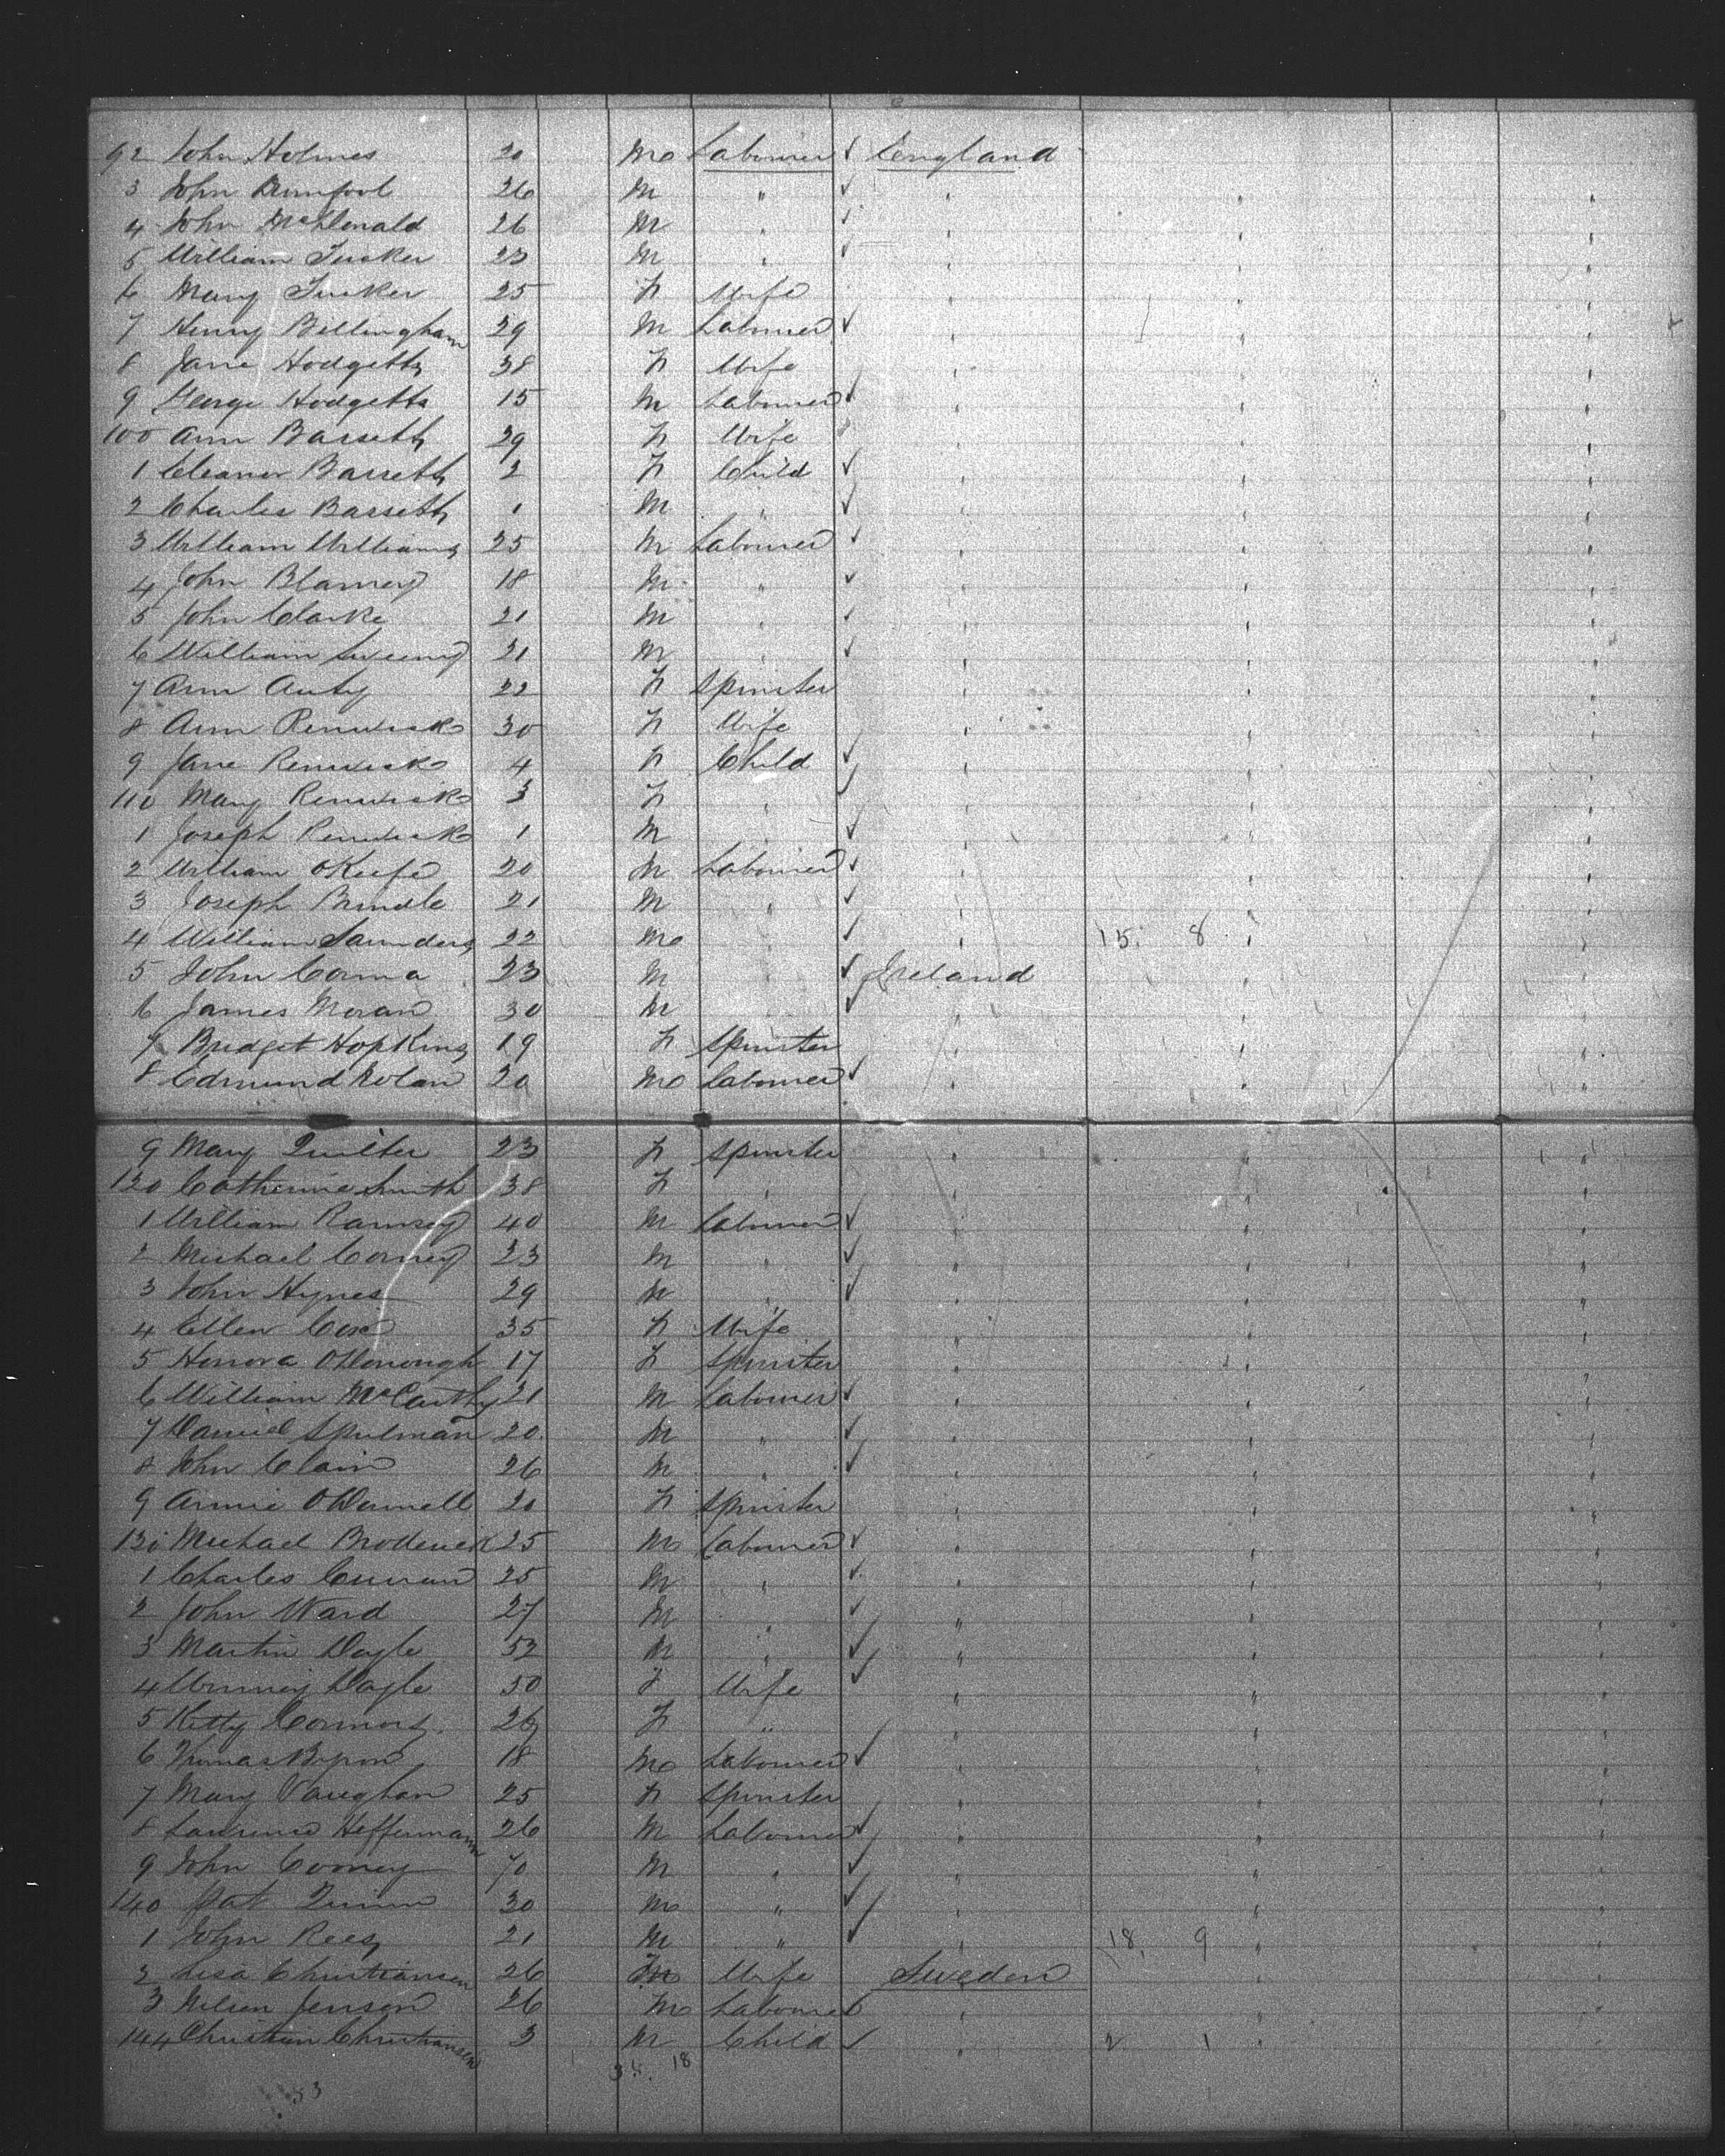 92 John Holmes 20 M Labourer ✓ England
3 John 26 M " ✓ "
4 John McDonald 26 M " ✓ "
5 William Tucker 23 M " ✓ "
6 Mary Tucker 25 F Wife "
7 Henry Billingham 29 M Labourer ✓ "
8 Jane Hodgetts 38 F Wife "
9 George Hodgetts 15 M Labourer ✓ "
100 Ann Bassett 29 F Wife "
1 Eleanor Bassett 2 F Child ✓ "
2 Charles Bassett 1 M " ✓ "
3 William Williams 25 M Labourer ✓ "
4 John Blamey 18 M " ✓ "
5 John Clarke 21 M " ✓ "
6 William Sweeny 21 M " ✓ "
7 Ann Auty 22 F Spinster "
8 Ann Renwick 30 F Wife "
9 Jane Renwick 4 F Child ✓ "
110 Mary Renwick 3 F " ✓ "
1 Joseph Renwick 1 M " ✓ "
2 William OKeefe 20 M Labourer ✓ "
3 Joseph Brindle 21 M " ✓ "
4 William Saunders 22 M " ✓ " 15. 8 "
5 John Corma 23 M " ✓ Ireland
6 James Moran 30 M " ✓ "
7 Bridget Hopkins 19 F Spinster "
8 Edmund Nolan 20 M Labourer ✓ "
9 Mary Quilter 23 F Spinster "
120 Catherine Smith 38 F " "
1 William Ramsey 40 M Labourer ✓ "
2 Michael Corney 23 M " ✓ "
3 John Hynes 29 M " ✓ "
4 Ellen Cox 35 F Wife "
5 Honora ODonough 17 F Spinster "
6 William McCarthy 21 M Labourer ✓ "
7 Daniel Spulman 20 M " ✓ "
8 John Clain 26 M " ✓ "
9 Annie ODonnell 20 F Spinster "
130 Michael Broderick 25 M Labourer ✓ "
1 Charles Curran 25 M " ✓ "
2 John Ward 27 M " ✓ "
3 Martin Doyle 52 M " ✓ "
4 Doyle 50 F Wife ✓ "
5 Kitty 26 F " "
6 Thomas Byron 18 M Labourer ✓ "
7 Mary Vaughan 25 F Spinster "
8 Laurence Heffernann 26 M Labourer ✓ "
9 John Cooney 70 M " ✓ "
140 Pat Quinn 30 M " ✓ "
1 John Rees 21 M " ✓ " 18. 9 "
2 Lisa Christiansen 26 F Wife Sweden "
3 Nilsen Jenson 26 M Labourer ✓ " "
144 Christian Christiansen 3 M Child ✓ " 2 1 "
18
53